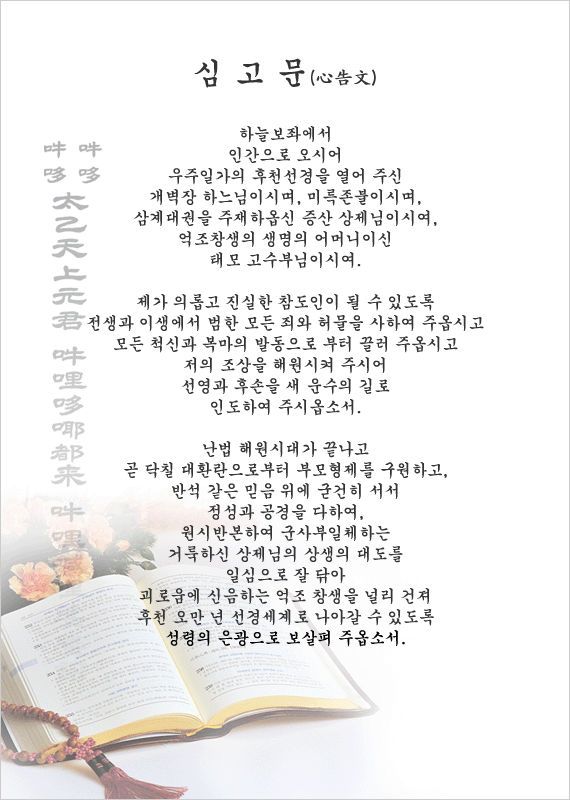 심 고 문(心告文)
하늘보좌에서
인간으로 오시어
우주일가의 후천선경을 열어 주신
개벽장 하느님이시며, 미륵존불이시며,
삼계대권을 주재하옵신 증산 상제님이시여,
억조창생의 생명의 어머니이신
태모 고수부님이시여.
제가 의롭고 진실한 참도인이 될 수 있도록
전생과 이생에서 범한 모든 죄와 허물을 사하여 주옵시고
모든 척신과 복마의 발동으로 부터 끌러 주옵시고
저의 조상을 해원시켜 주시어
선영과 후손을 새 운수의 길로
인도하여 주시옵소서.
난법 해원시대가 끝나고
곧 닥칠 대환란으로부터 부모형제를 구원하고,
반석 같은 믿음 위에 굳건히 서서
정성과 공경을 다하여,
원시반본하여 군사부일체하는
거룩하신 상제님의 상생의 대도를
일심으로 잘 닦아
괴로움에 신음하는 억조 창생을 널리 건져
후천 오만 년 선경세계로 나아갈 수 있도록
성령의 은광으로 보살펴 주옵소서.
吽哆 吽哆
太乙天上元君 吽哩哆㖿都来 吽哩